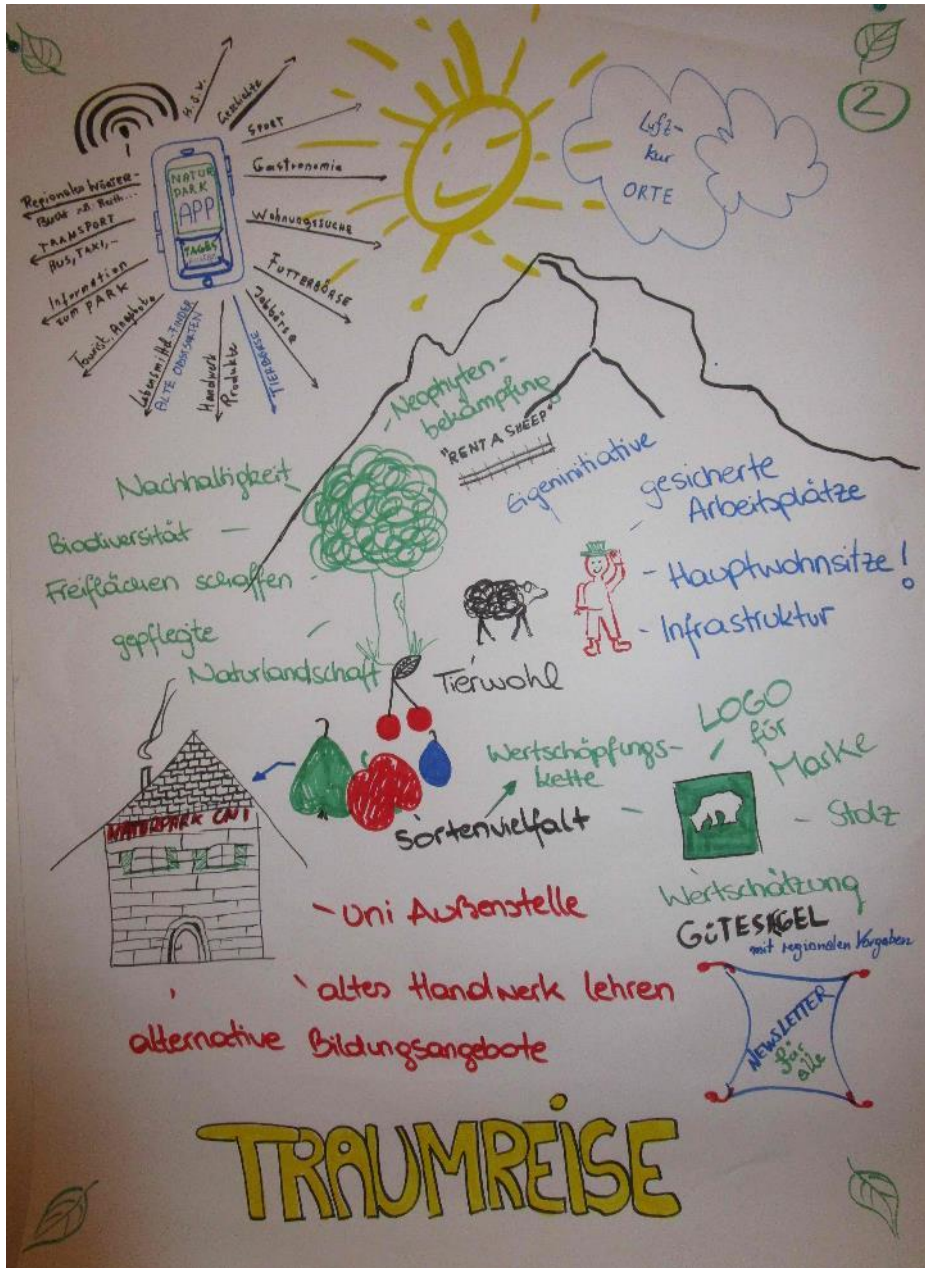 2
U.S.W.
Geschichte
SPORT
Gastronomie
Wohnungssuche
FUTTERBÖRSE
Jobbörse
TIERBÖRSE
Handwerk
Produkte
Lebensmittel-FINDER
ALTE OBSTSORTEN
Tourist. Angebote
Information
ZUM PARK
TRANSPORT
BUS, TAXI,...
Regionales WÖRTER-
BUCH z.B.
NATUR
PARK
APP
TAGES
Luft-
kur
ORTE
Neophyten-
bekämpfung
"RENT A SHEEP"
Eigeninitiative
gesicherte
Arbeitsplätze
- Hauptwohnsitze!
- Infrastruktur
Nachhaltigkeit
Biodiversität -
Freiflächen schaffen -
gepflegte
Naturlandschaft
Tierwohl
Wertschöpfungs-
kette
Sortenvielfalt -
LOGO
für
Marke
- Stolz
Wertschätzung
GÜTESIEGEL
mit regionalen Vorgaben
NATURPARK UNI
- Uni Außenstelle
altes Handwerk lehren
alternative Bildungsangebote
NEWSLETTER
für
alle
TRAUMREISE